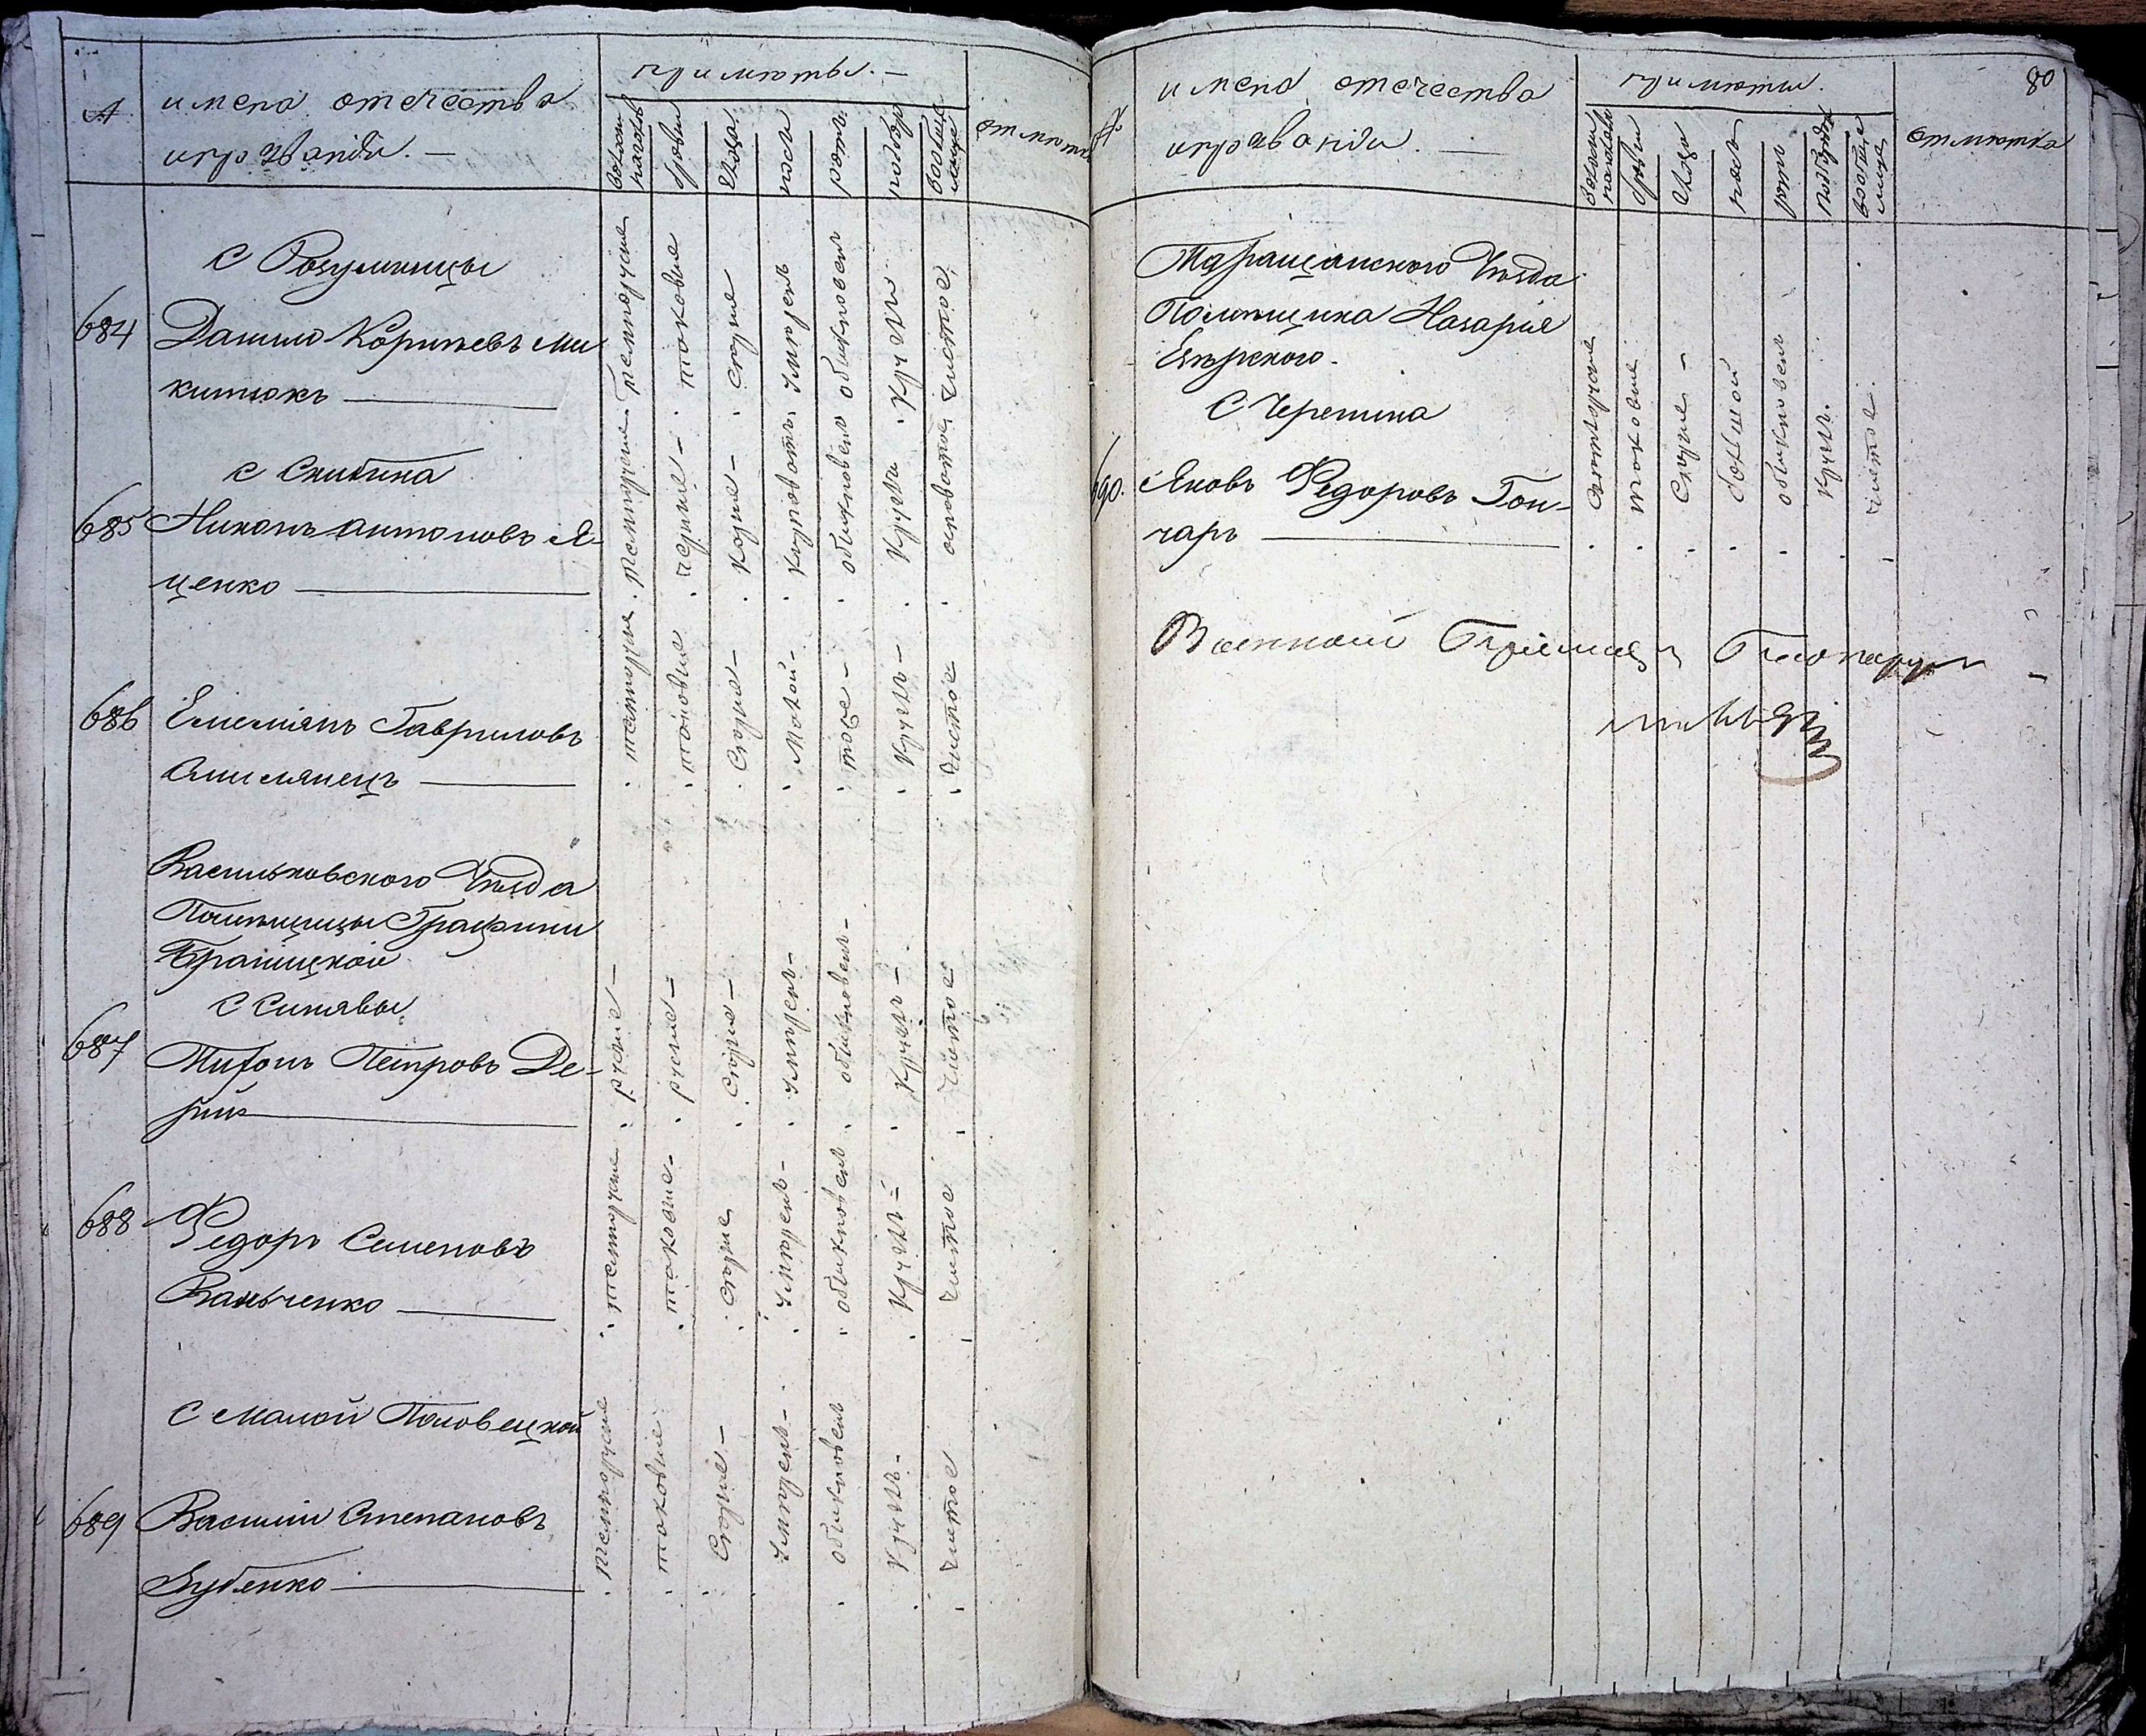 №
имена отечества
и прозванiи. —
приметы. —
волосы на голове
брови
глаза
носъ
ротъ
подбор
вообще лице
отметк
с Розумницы
684 Данило Корнеевъ Ми
китюкъ
темнорусые
таковые
серые
умерен
обыкновен
кругло
чистое
с Скибина
685 Никонъ Антоновъ Я-
ценко
темнорусые
черные —
карие —
обыкновен
кругл
686 Емельянъ Гавриловъ
Омельянецъ
темнорусые
таковые
серые —
малой —
тоже —
кругл —
чистое
Васильковского Уезда
Помещицы Графини
Браницкой
с Синявы
687 Миронъ Петровъ Де-
рий
русые —
русые —
серые —
умерен —
обыкновен —
кругл —
чистое
688 Федоръ Семеновъ
Ванченко
темнорусые
таковые —
серые
умерен —
обыкновен
кругл
чистое
с малой Половецкой
689 Василий Степановъ
Зубенко
темнорусые
таковые
серые —
умерен —
обыкновен
кругл —
чистое
80
№
имена отечества
и прозванiи. —
приметы.
волосы на голове
брови
глаза
носъ
ротъ
подбородк
вообще лице
отметка
Таращанского Уезда
Помещика Назария
с Черепина
690. Яковъ Федоровъ Гон-
чаръ
светлорусые
таковые
серые —
большой
обыкновен
кругл.
чистое.
Военной Приемщик